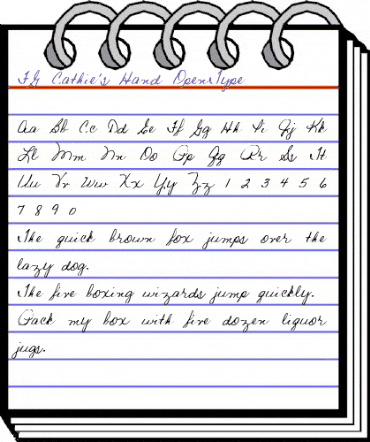 FG Cathie's Hand OpenType
Aa Bb Cc Dd Ee Ff Gg Hh Ii Jj Kk
Ll Mm Nn Oo Pp Qq Rr Ss Tt
Uu Vv Ww Xx Yy Zz 1 2 3 4 5 6
7 8 9 0
The quick brown fox jumps over the
lazy dog.
The five boxing wizards jump quickly.
Pack my box with five dozen liquor
jugs.